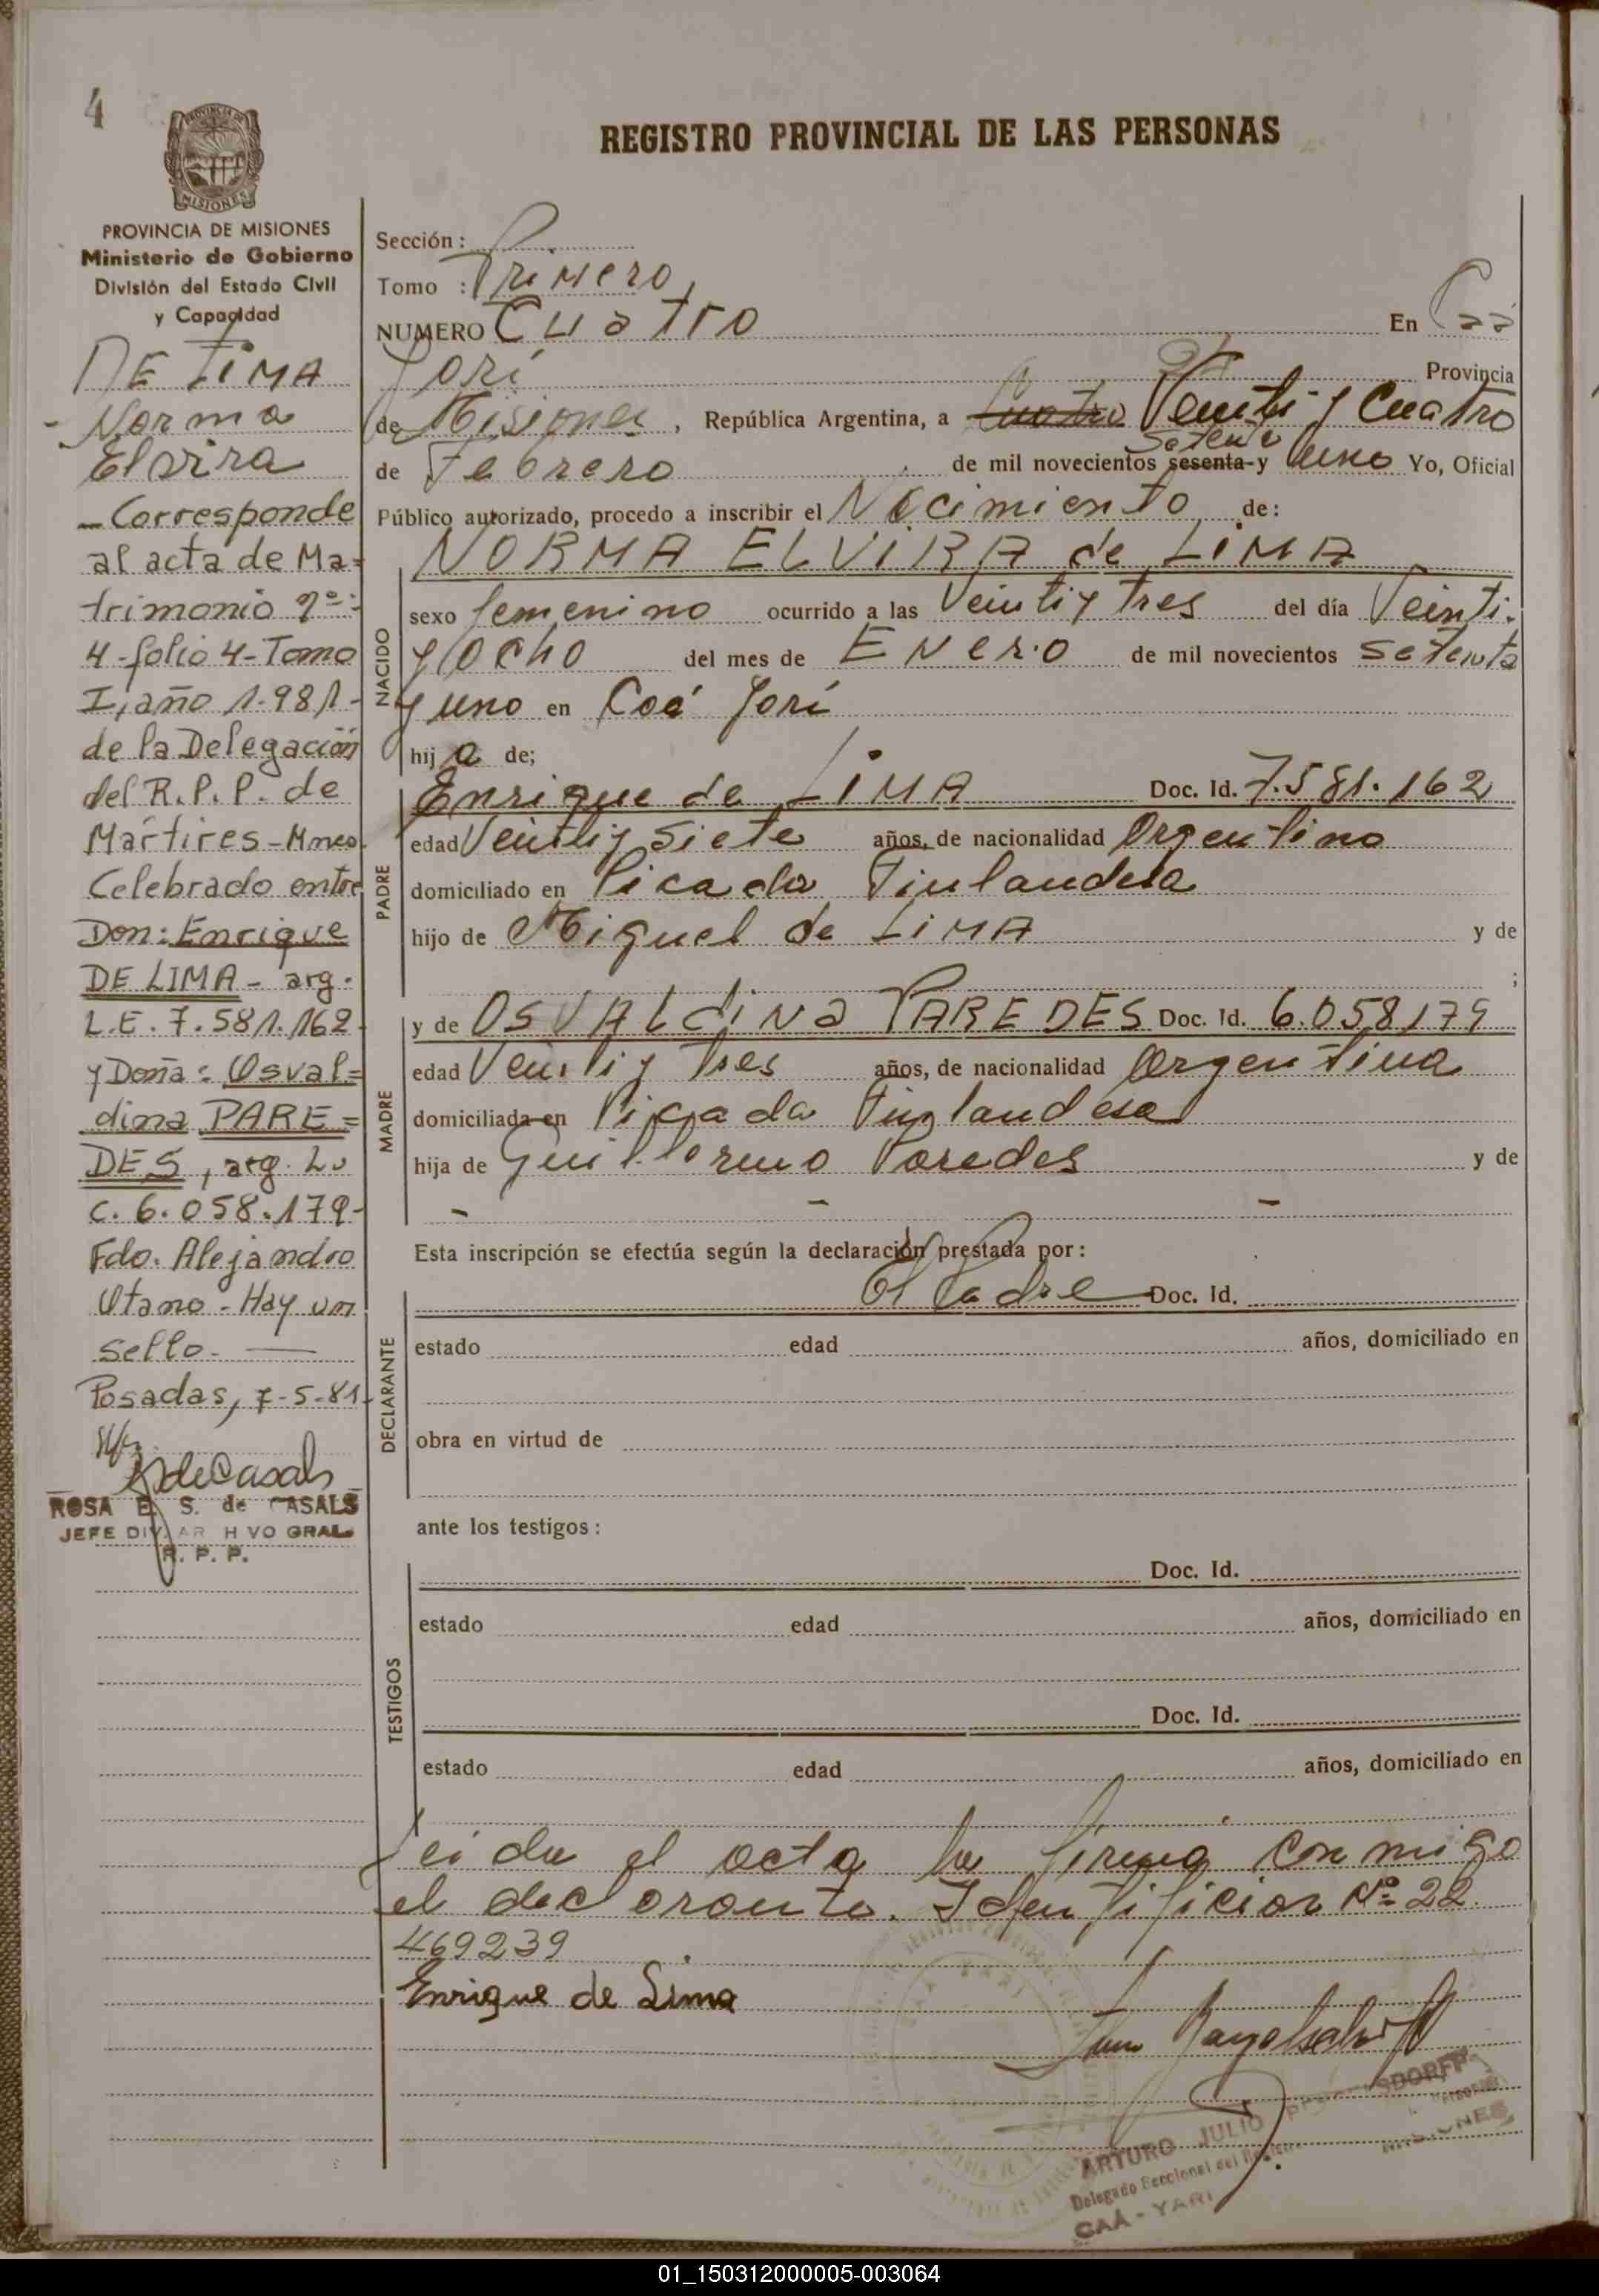 4
REGISTRO PROVINCIAL DE LAS PERSONAS
PROVINCIA DE MISIONES
Ministerio de Gobierno
División del Estado Civil
y Capacidad
DE LIMA
Norma
Elvira
- Corresponde
al acta de Ma=
trimonio nº:
4-folio 4-Tomo
I, año 1.981-
de la Delegación
del R.P.P. de
Mártires-Mnes.
Celebrado entre
Don: Enrique
DE LIMA - arg.
L.E. 7.581.162
y Doña: Osval=
dina PARE=
DES, arg. L.
C. 6.058.179-
Fdo. Alejandro
Otano - Hay un
sello.
Posadas, 7-5-81.
ROSA E. S. de CASALS
JEFE DIV. AR H VO GRAL.
R. P. P.
Sección:
Tomo : Primero
NUMERO Cuatro En Caá
Yarí Provincia
de Misiones, República Argentina, a Cuatro Veinti y Cuatro
setenta
de Febrero de mil novecientos sesenta y uno Yo, Oficial
Público autorizado, procedo a inscribir el Nacimiento de:
NORMA ELVIRA de LIMA
NACIDO
sexo femenino ocurrido a las Veinti y tres del día Veinti-
y ocho del mes de ENERO de mil novecientos setenta
y uno en Caá Yarí
hij a de;
PADRE
Enrique de LIMA Doc. Id. 7.581.162
edad Veinti y Siete años, de nacionalidad Argentino
domiciliado en Picada Finlandesa
hijo de Miguel de LIMA y de
;
MADRE
y de OSVALdiNa PAREDES Doc. Id. 6.058179
edad Veinti y tres años, de nacionalidad Argentina
domiciliada en Picada Finlandesa
hija de Guillermo Paredes y de
- - -
Esta inscripción se efectúa según la declaración prestada por:
DECLARANTE
El Padre Doc. Id.
estado edad años, domiciliado en
obra en virtud de
ante los testigos:
TESTIGOS
Doc. Id.
estado edad años, domiciliado en
Doc. Id.
estado edad años, domiciliado en
Leida el acta la firma conmigo
el declarante. Identificior Nº 22.
469239
Enrique de Lima
ARTURO JULIO
Delegado Seccional del
CAA-YARI
MISIONES
01_150312000005-003064